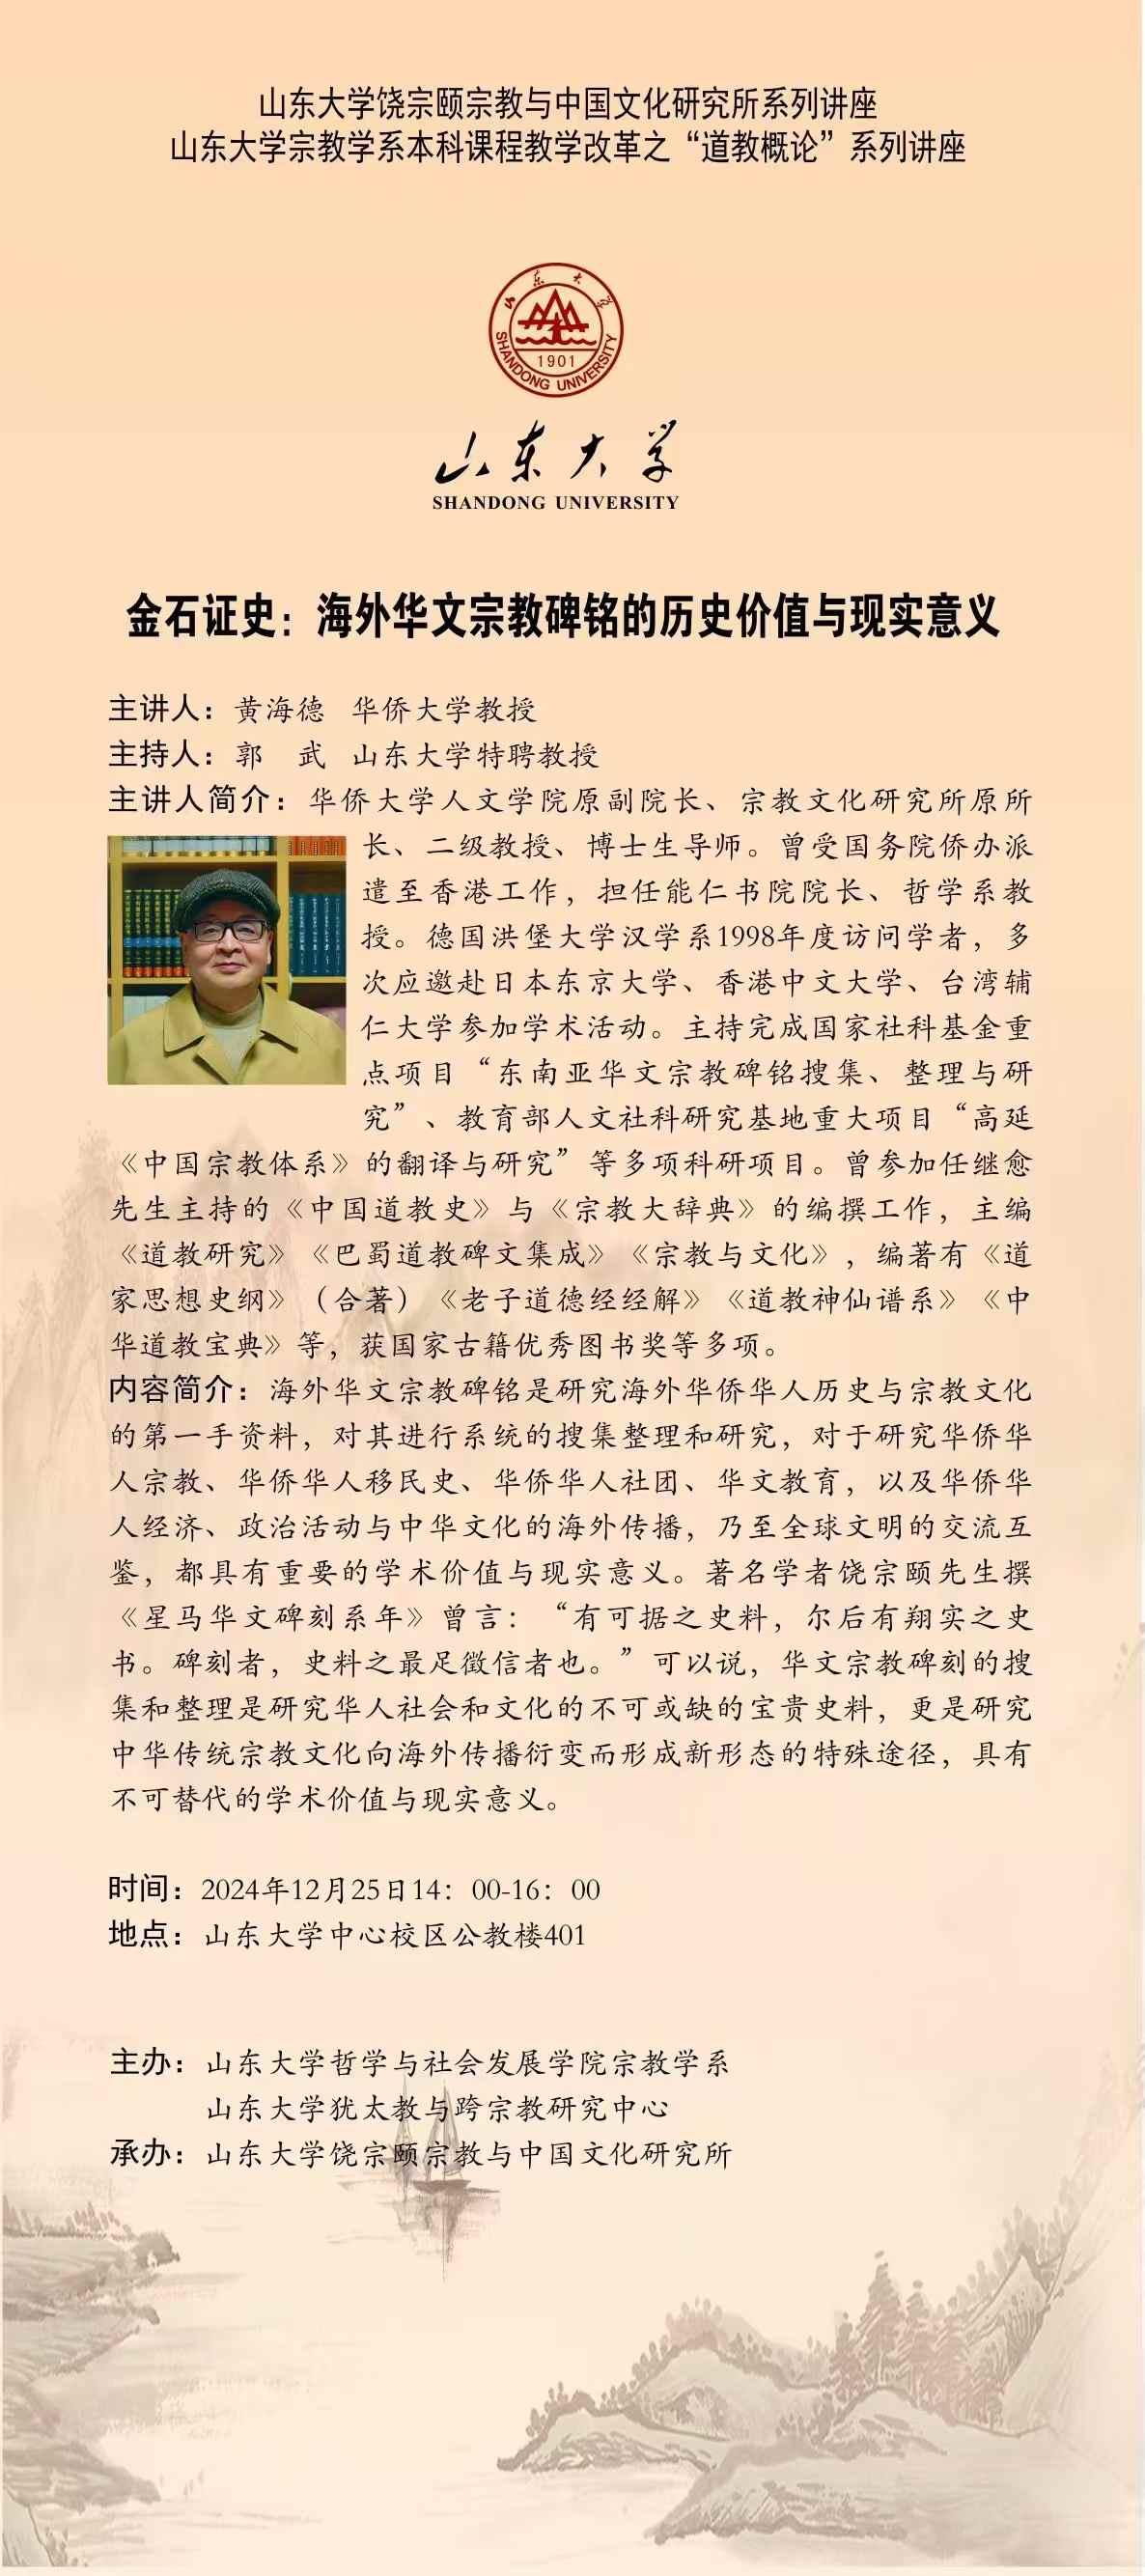 山东大学饶宗颐宗教与中国文化研究所系列讲座
山东大学宗教学系本科课程教学改革之“道教概论”系列讲座
山东大学
1901
SHANDONG UNIVERSITY
山东大学
SHANDONG UNIVERSITY
金石证史：海外华文宗教碑铭的历史价值与现实意义
主讲人：黄海德 华侨大学教授
主持人：郭 武 山东大学特聘教授
主讲人简介：华侨大学人文学院原副院长、宗教文化研究所原所
长、二级教授、博士生导师。曾受国务院侨办派
遣至香港工作，担任能仁书院院长、哲学系教
授。德国洪堡大学汉学系1998年度访问学者，多
次应邀赴日本东京大学、香港中文大学、台湾辅
仁大学参加学术活动。主持完成国家社科基金重
点项目“东南亚华文宗教碑铭搜集、整理与研
究”、教育部人文社科研究基地重大项目“高延
《中国宗教体系》的翻译与研究”等多项科研项目。曾参加任继愈
先生主持的《中国道教史》与《宗教大辞典》的编撰工作，主编
《道教研究》《巴蜀道教碑文集成》《宗教与文化》，编著有《道
家思想史纲》（合著）《老子道德经经解》《道教神仙谱系》《中
华道教宝典》等，获国家古籍优秀图书奖等多项。
内容简介：海外华文宗教碑铭是研究海外华侨华人历史与宗教文化
的第一手资料，对其进行系统的搜集整理和研究，对于研究华侨华
人宗教、华侨华人移民史、华侨华人社团、华文教育，以及华侨华
人经济、政治活动与中华文化的海外传播，乃至全球文明的交流互
鉴，都具有重要的学术价值与现实意义。著名学者饶宗颐先生撰
《星马华文碑刻系年》曾言：“有可据之史料，尔后有翔实之史
书。碑刻者，史料之最足徵信者也。”可以说，华文宗教碑刻的搜
集和整理是研究华人社会和文化的不可或缺的宝贵史料，更是研究
中华传统宗教文化向海外传播衍变而形成新形态的特殊途径，具有
不可替代的学术价值与现实意义。
时间：2024年12月25日14：00-16：00
地点：山东大学中心校区公教楼401
主办：山东大学哲学与社会发展学院宗教学系
山东大学犹太教与跨宗教研究中心
承办：山东大学饶宗颐宗教与中国文化研究所